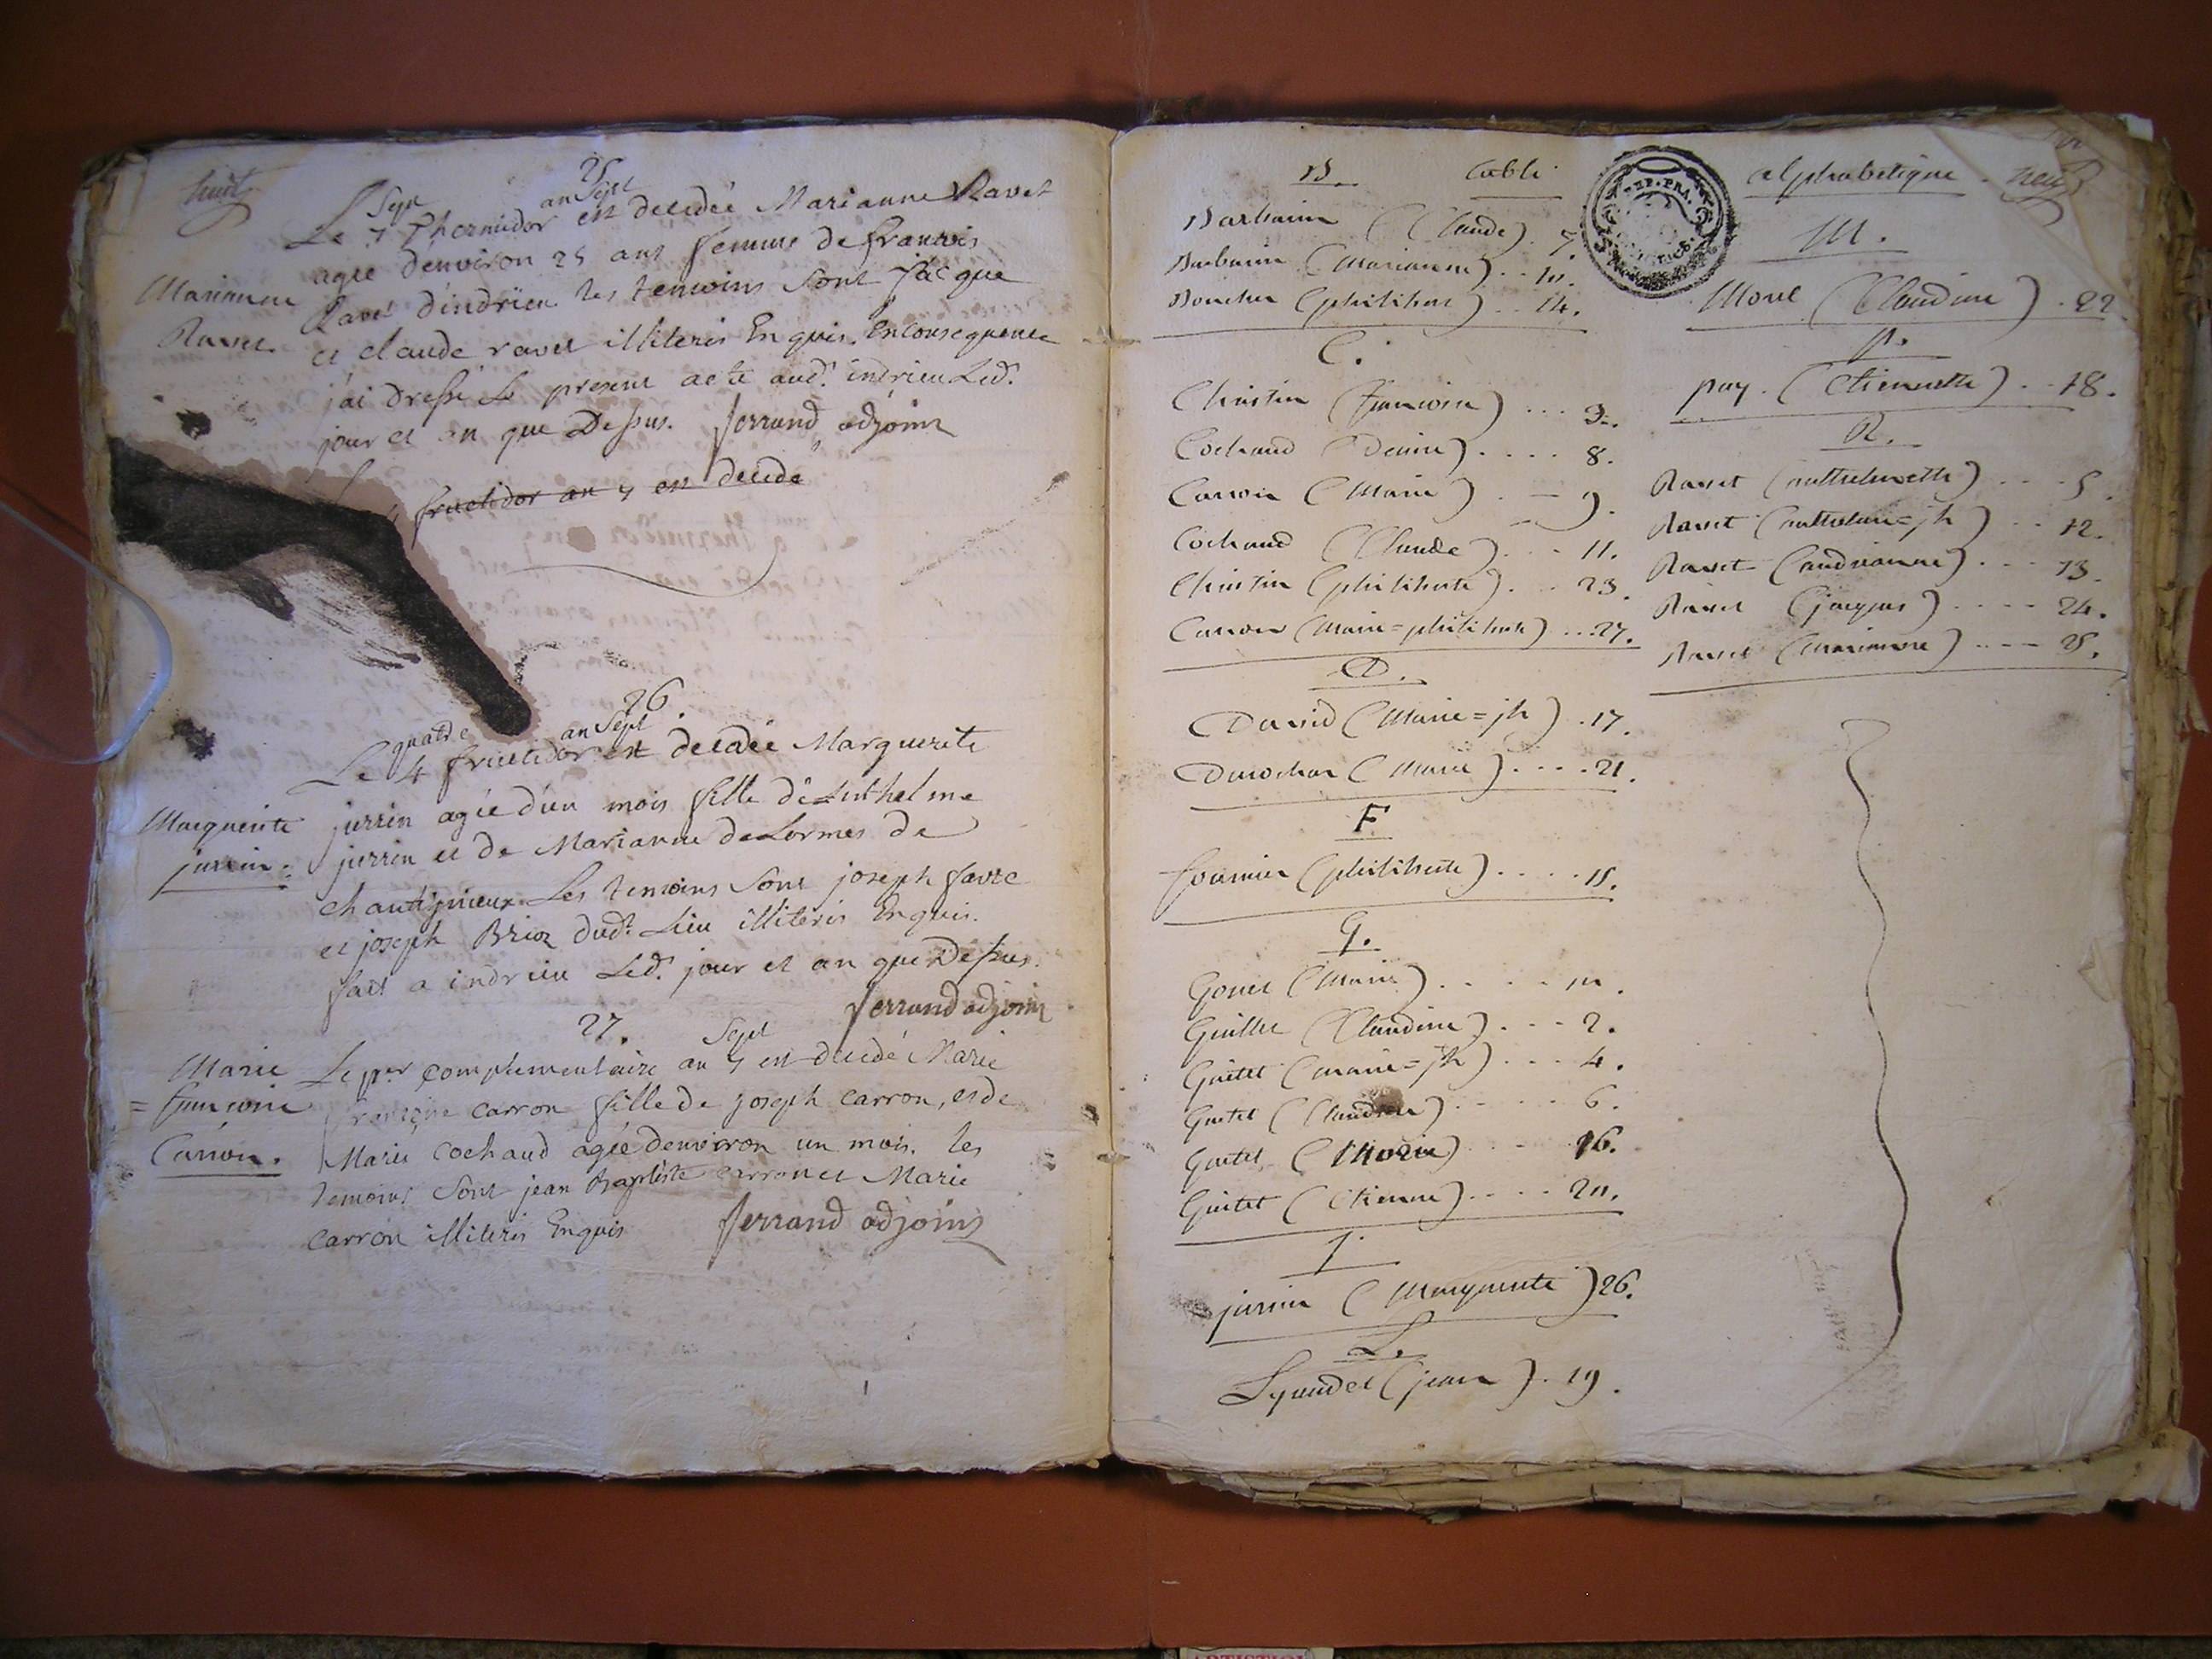 huit
25
Sept an Sept
Le 7 thermidor est décédée Marianne Ravet
agée d'environ 25 ans femme de francois
Marianne
Ravet d'indrieu les temoins sont jacque
Ravet
et claude ravet illiteris Enquis. En consequence
j'ai dressé Le present acte aud.t indrieu Led.t
jour et an que Dessus. ferrand adjoint
fructidor an 7 est décédé
26.
quatre an Sept
Le 4 fructidor est décédée Marguerite
Marguerite
jurrin agée d'un mois fille d'Anthelme
jurrin.
jurrin et de Marianne deLormes de
chantijnieux Les temoins sont joseph favre
et joseph Brior dud.t Lieu illiteris Enquis.
fait a indrieu Led.t jour et an que Dessus.
ferrand adjoint
27.
Sept
Marie
Le p.er complementaire an 7 est décédé Marie
= francoise
francoise carron fille de joseph carron, et de
Carron.
Marie cochaud agée d'environ un mois. les
temoins sont jean Baptiste carron et Marie
carron illiteris Enquis ferrand adjoint
B. table alphabetique. neuf
REP. FRA.
Barbarin (Claude) . 7.
Barbarin (marianne) . . 10.
Boucher (philibert) . . 14.
C.
Christin (francoise) . . . 3.
Cochaud (Denise) . . . . 8.
Carron (Marie) . — 9.
Cochaud (Claude) . . . 11.
Christin (philiberte) . . . 23.
Carron (marie=philiberte) . . 27.
D.
David (Marie=jh) . 17.
Durochar (Marie) . . . . 21.
F
fournier (philiberte) . . . . 15.
G.
Gonet (Marie) . . . . .
Guillet (Claudine) . . . 2.
Guitet (marie=jh) . . . 4.
Guitet (Claudine) . . . . . 6.
Guitet (Marie) . . 16.
Guitet (Etienne) . . . . 20.
J.
jurrin (Marguerite) 26.
L.
Lyaudet (jean) . 19.
M.
Morel (Claudine) . 22.
P.
puy. (Etiennette) . . 18.
R.
Ravet (anthelmette) . . . . 5.
Ravet (anthelme=jh) . . 12.
Ravet (andrianne) . . . 13.
Ravet (jacques) . . . . 24.
Ravet (marianne) . . . . 25.